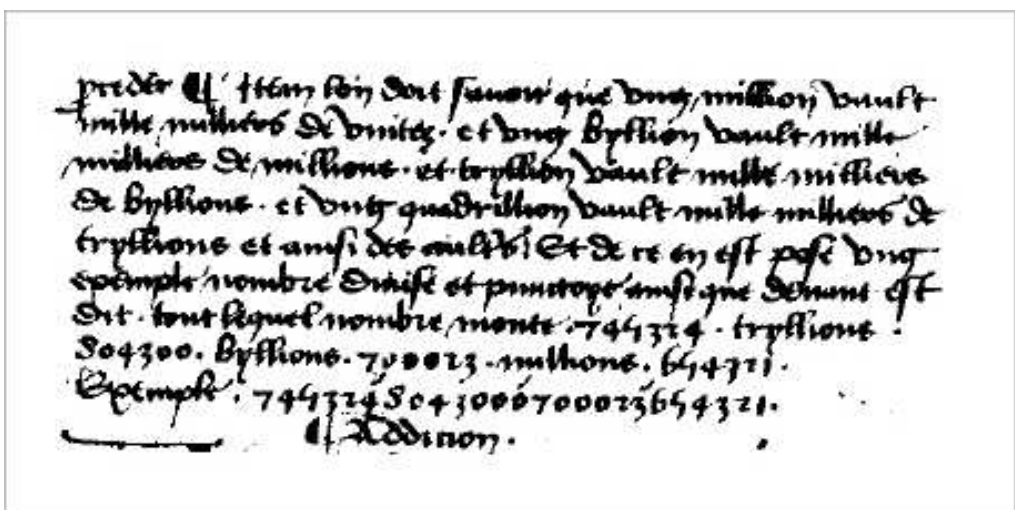 preder ¶ Item lon doit savoir que ung million vault
mille milliers de unitez. et ung byllion vault mille
milliers de millions. et tryllion vault mille milliers
de byllions. et ung quadrillion vault mille milliers de
tryllions et ainsi des aultres. Et de ce en est pose ung
exemple nombre divise et punctoye ainsi que devant est
dit. tout lequel nombre monte. 745324. tryllions.
804300. byllions. 700023. millions. 654321.
Exemple. 745324804300700023654321.
¶ Addicion.